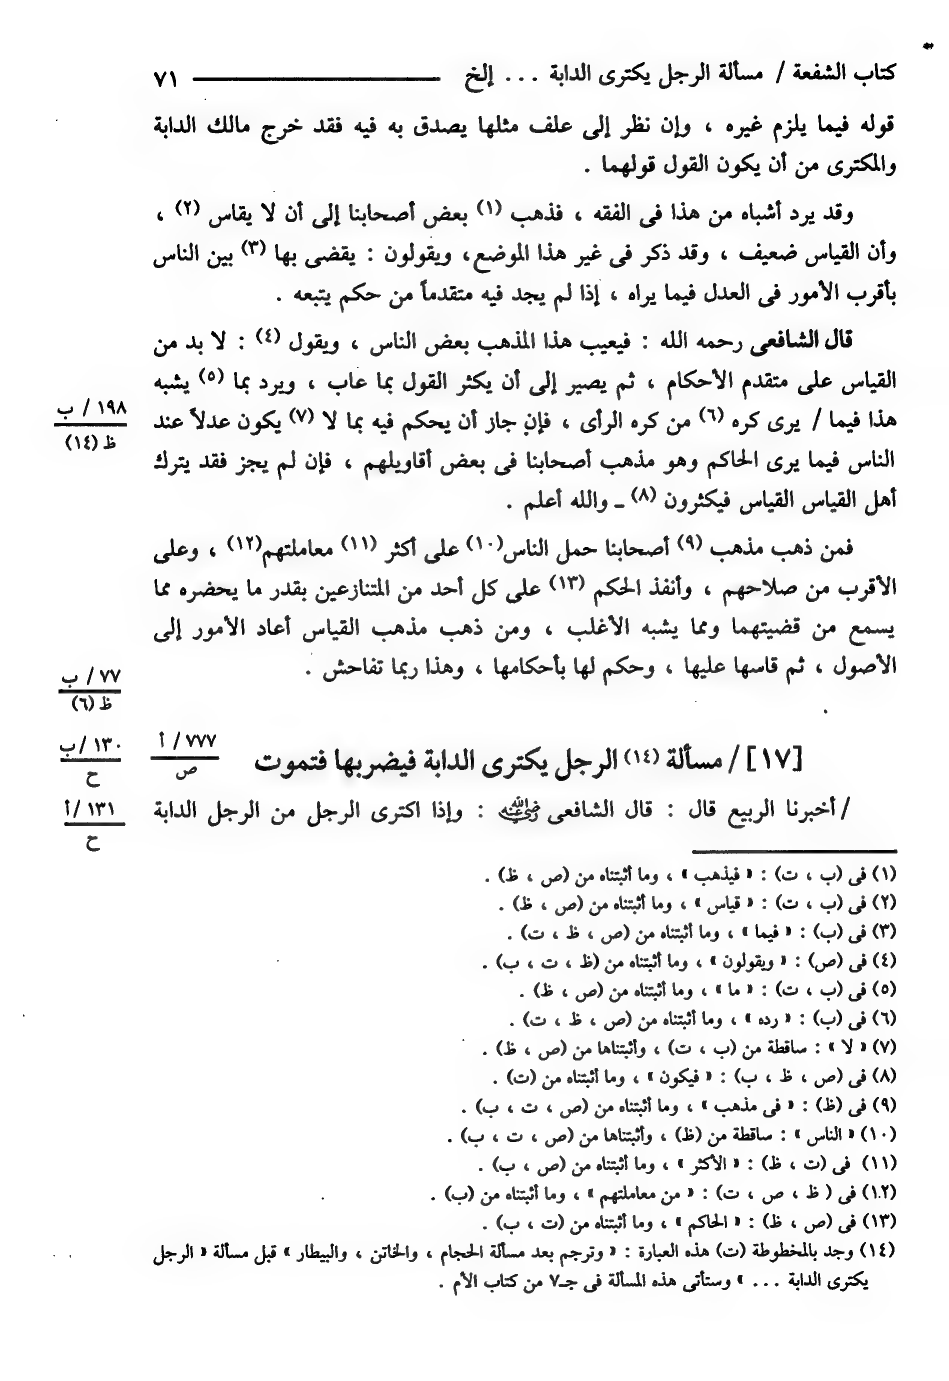 كتاب الشفعة / مسألة الرجل يكترى الدابة ... إلخ ٧١
قوله فيما يلزم غيره ، وإن نظر إلى علف مثلها يصدق به فيه فقد خرج مالك الدابة
والمكترى من أن يكون القول قولهما .
وقد يرد أشباه من هذا فى الفقه ، فذهب (١) بعض أصحابنا إلى أن لا يقاس (٢) ،
وأن القياس ضعيف ، وقد ذكر فى غير هذا الموضع، ويقولون : يقضى بها (٣) بين الناس
بأقرب الأمور فى العدل فيما يراه ، إذا لم يجد فيه متقدماً من حكم يتبعه .
قال الشافعى رحمه الله : فيعيب هذا المذهب بعض الناس ، ويقول (٤) : لا بد من
القياس على متقدم الأحكام ، ثم يصير إلى أن يكثر القول بما عاب ، ويرد بما (٥) يشبه
هذا فيما / يرى كره (٦) من كره الرأى ، فإن جاز أن يحكم فيه بما لا (٧) يكون عدلاً عند
١٩٨ / ب
ظ (١٤)
الناس فيما يرى الحاكم وهو مذهب أصحابنا فى بعض أقاويلهم ، فإن لم يجز فقد يترك
أهل القياس القياس فيكثرون (٨) ـ والله أعلم .
فمن ذهب مذهب (٩) أصحابنا حمل الناس(١٠) على أكثر (١١) معاملتهم(١٢) ، وعلى
الأقرب من صلاحهم ، وأنفذ الحكم (١٣) على كل أحد من المتنازعين بقدر ما يحضره مما
يسمع من قضيتهما ومما يشبه الأغلب ، ومن ذهب مذهب القياس أعاد الأمور إلى
الأصول ، ثم قاسها عليها ، وحكم لها بأحكامها ، وهذا ربما تفاحش .
٧٧ / ب
ظ (٦)
[١٧] / مسألة (١٤) الرجل يكترى الدابة فيضربها فتموت
٧٧٧ / أ
ص
١٣٠ /ب
ح
/ أخبرنا الربيع قال : قال الشافعى رضي الله عنه : وإذا اكترى الرجل من الرجل الدابة
١٣١ /أ
ح
(١) فى (ب ، ت) : « فيذهب » ، وما أثبتناه من (ص ، ظ) .
(٢) فى (ب ، ت) : « قياس » ، وما أثبتناه من (ص ، ظ) .
(٣) فى (ب) : « فيما » ، وما أثبتناه من (ص ، ظ ، ت) .
(٤) فى (ص) : « ويقولون » ، وما أثبتناه من (ظ ، ت ، ب) .
(٥) فى (ب ، ت) : « ما » ، وما أثبتناه من (ص ، ظ) .
(٦) فى (ب) : « رده » ، وما أثبتناه من (ص ، ظ ، ت) .
(٧) « لا » : ساقطة من (ب ، ت) ، وأثبتناها من (ص ، ظ) .
(٨) فى (ص ، ظ ، ب) : « فيكون » ، وما أثبتناه من (ت) .
(٩) فى (ظ) : « فى مذهب » ، وما أثبتناه من (ص ، ت ، ب) .
(١٠) « الناس » : ساقطة من (ظ) ، وأثبتناها من (ص ، ت ، ب) .
(١١) فى (ت ، ظ) : « الأكثر » ، وما أثبتناه من (ص ، ب) .
(١٢) فى ( ظ ، ص ، ت) : « من معاملتهم » ، وما أثبتناه من (ب) .
(١٣) فى (ص ، ظ) : « الحاكم » ، وما أثبتناه من (ت ، ب) .
(١٤) وجد بالمخطوطة (ت) هذه العبارة : « وترجم بعد مسألة الحجام ، والخاتن ، والبيطار » قبل مسألة « الرجل
يكترى الدابة ... » وستأتى هذه المسألة فى جـ٧ من كتاب الأم .